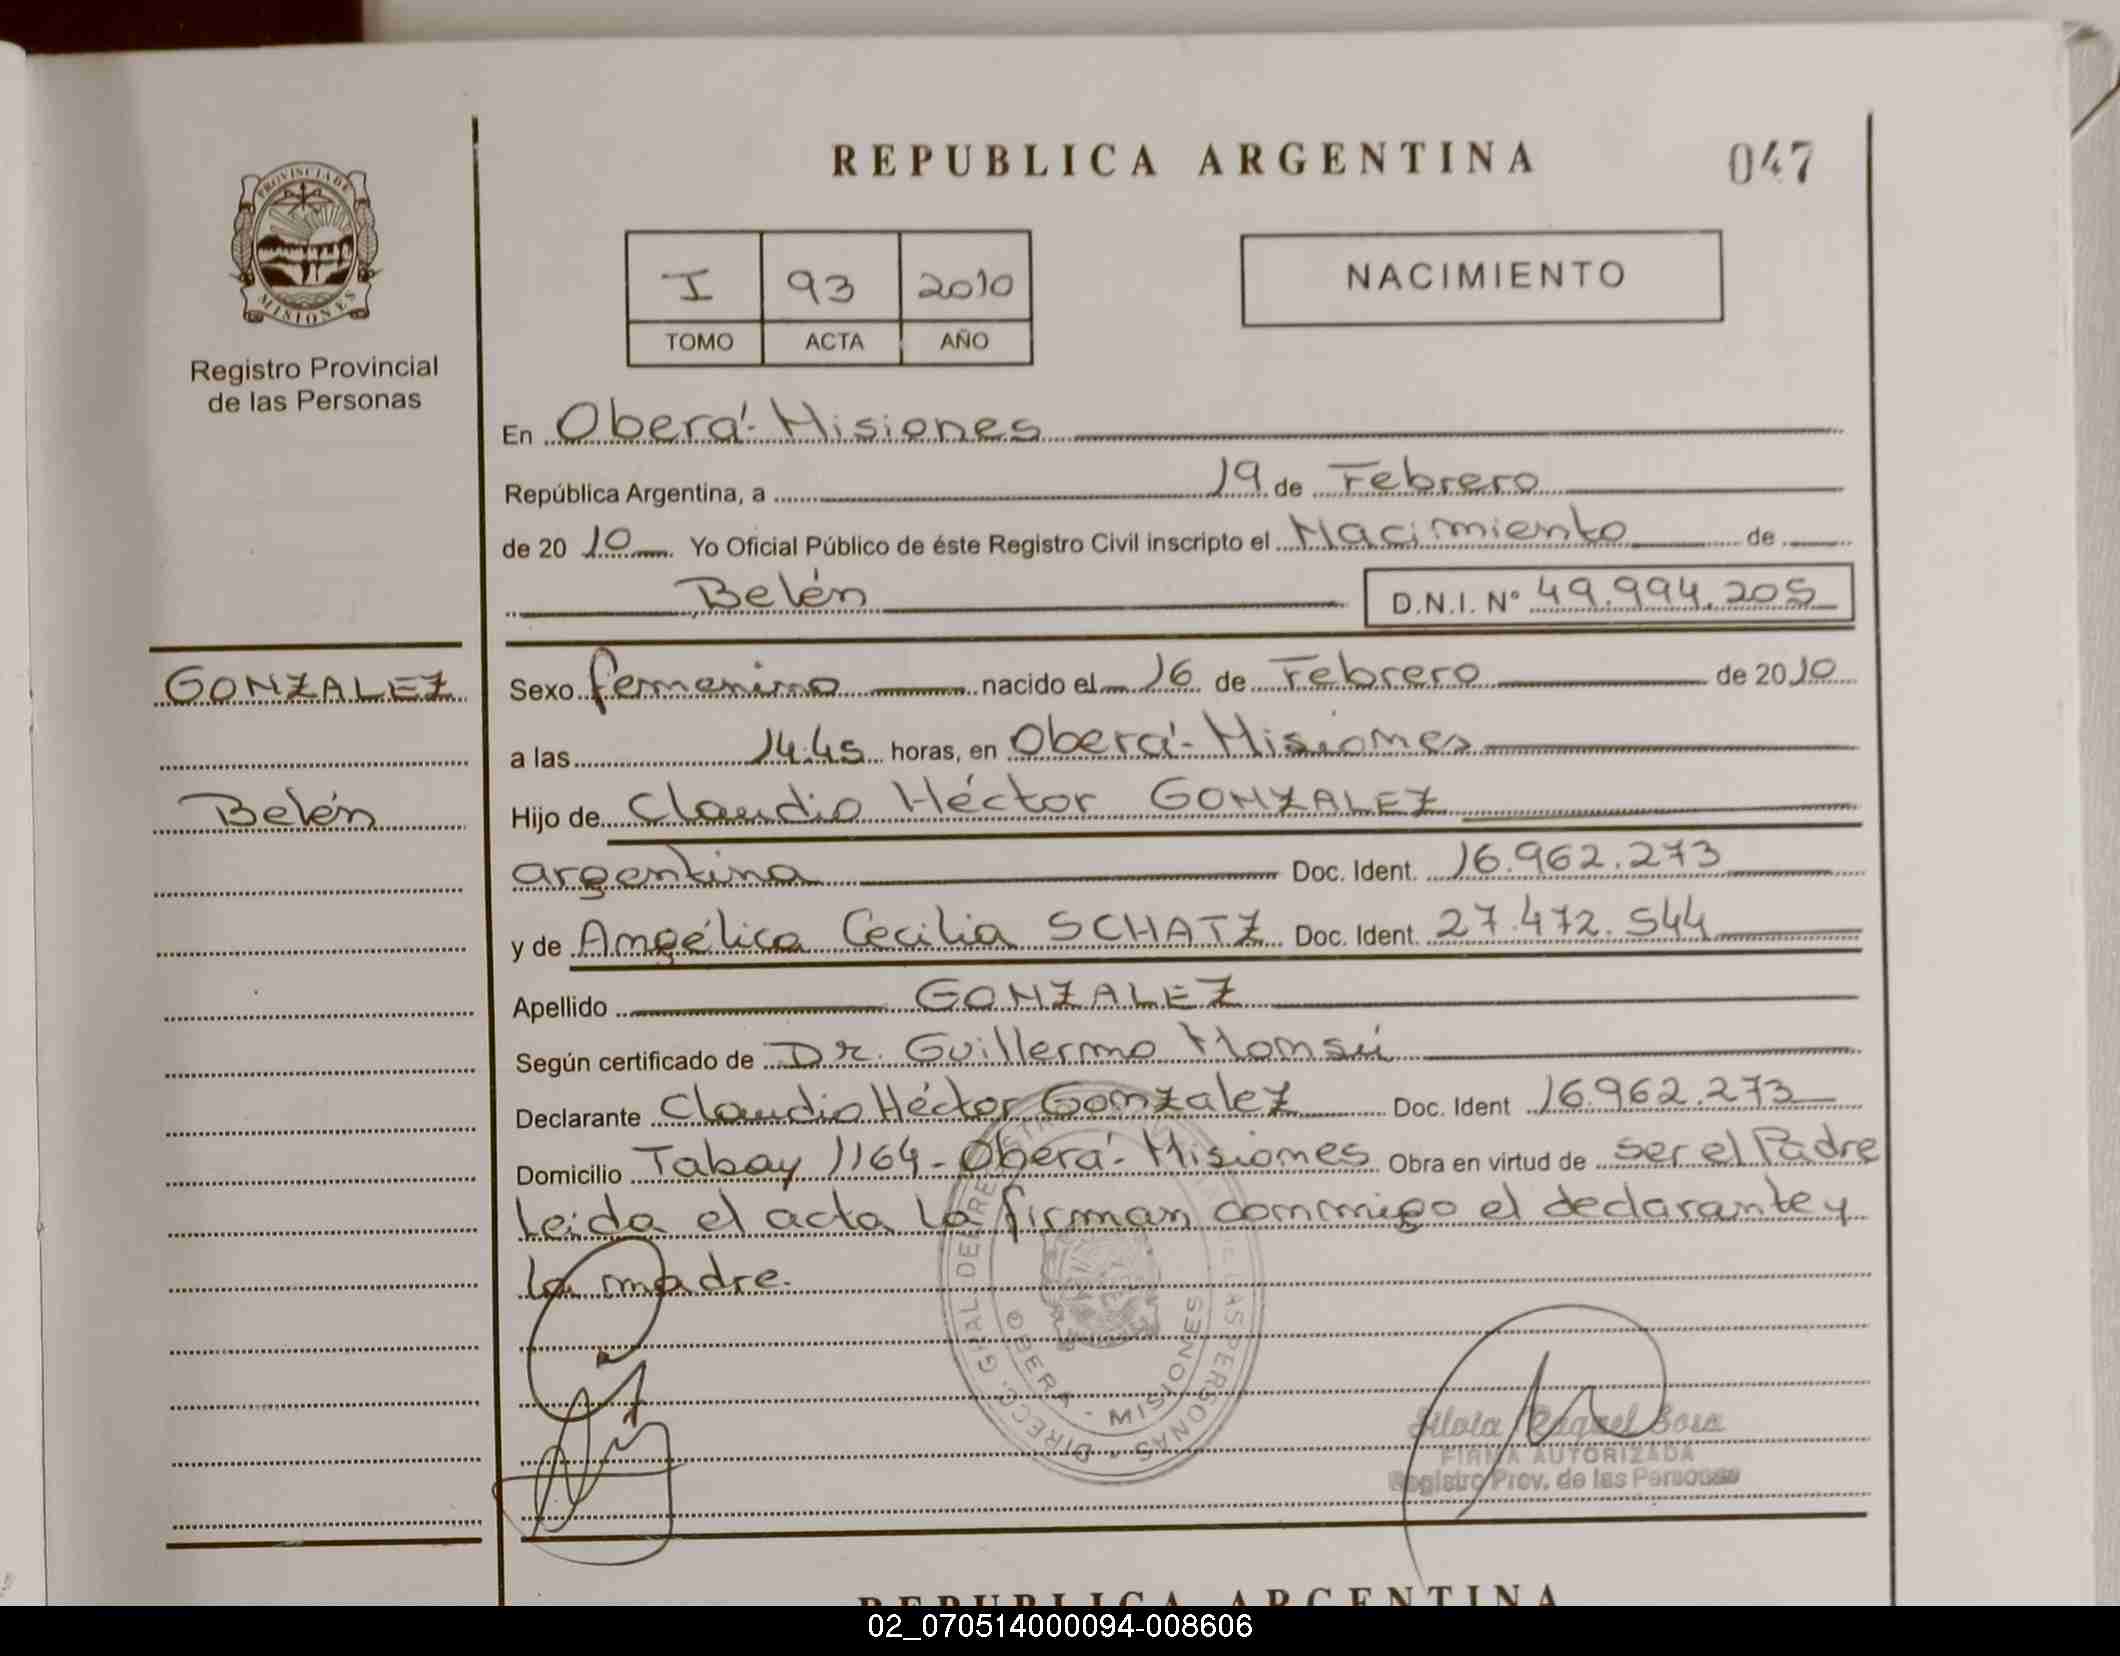 REPUBLICA ARGENTINA
047
PROVINCIA DE
MISIONES
Registro Provincial
de las Personas
I 93 2010
TOMO ACTA AÑO
NACIMIENTO
En Oberá - Misiones
República Argentina, a 19 de Febrero
de 2010 Yo Oficial Público de éste Registro Civil inscripto el Nacimiento de
Belén D.N.I. Nº 49.994.205
GONZALEZ
Belén
Sexo femenino nacido el 16 de Febrero de 2010
a las 14.45 horas, en Oberá - Misiones
Hijo de Claudio Héctor GONZALEZ
argentina Doc. Ident. 16.962.273
y de Angélica Cecilia SCHATZ Doc. Ident. 27.472.544
Apellido GONZALEZ
Según certificado de Dr. Guillermo
Declarante Claudio Héctor Gonzalez Doc. Ident 16.962.273
Domicilio Tabay 1164 - Oberá - Misiones Obra en virtud de ser el Padre
Leida el acta la firman conmigo el declarante y
la madre.
OBERA - MISIONES
Raquel Sosa
FIRMA AUTORIZADA
Registro Prov. de las Personas
REPUBLICA ARGENTINA
02_070514000094-008606